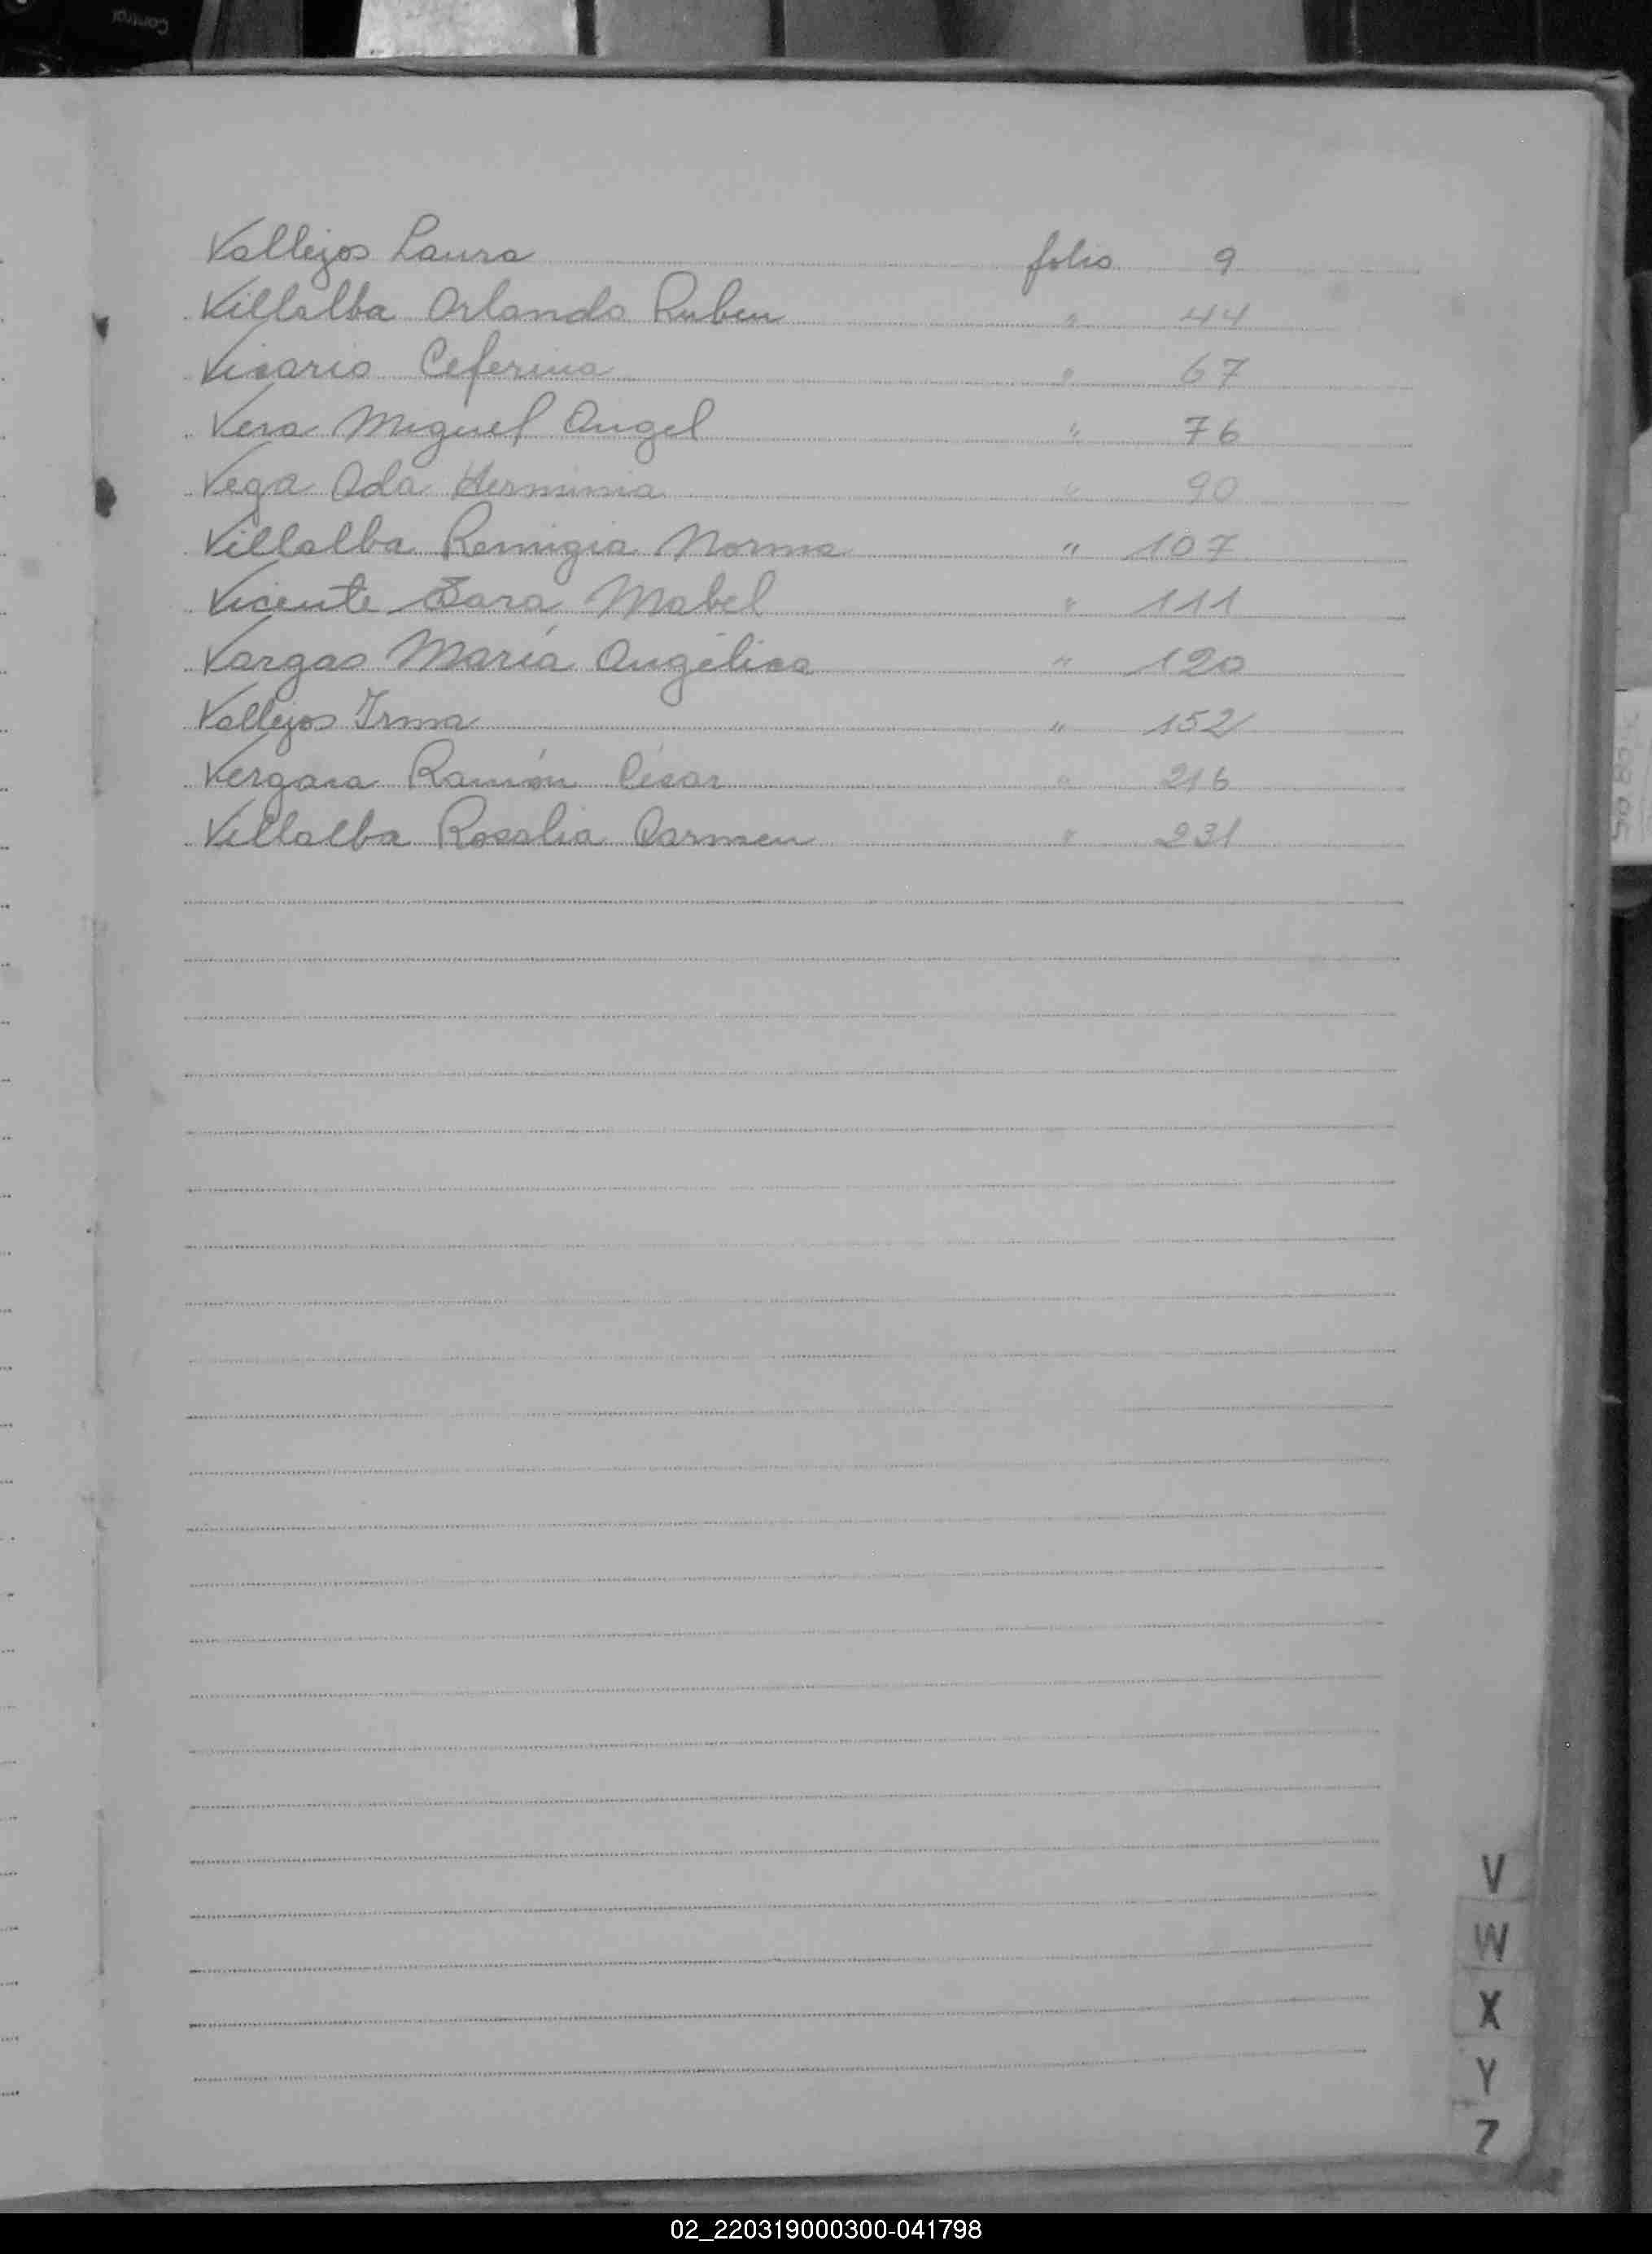 Vallejos Laura folio 9
Villalba Orlando Ruben " 44
Vicario Ceferina " 67
Vera Miguel Angel " 76
Vega Oda Herminia " 90
Villalba Remigia Norma " 107
Vicente Sara Mabel " 111
Vargas María Angélica " 120
Vallejos Irma " 152
Vergara Ramón César " 216
Villalba Rosalia Carmen " 231
V
W
X
Y
Z
02_220319000300-041798